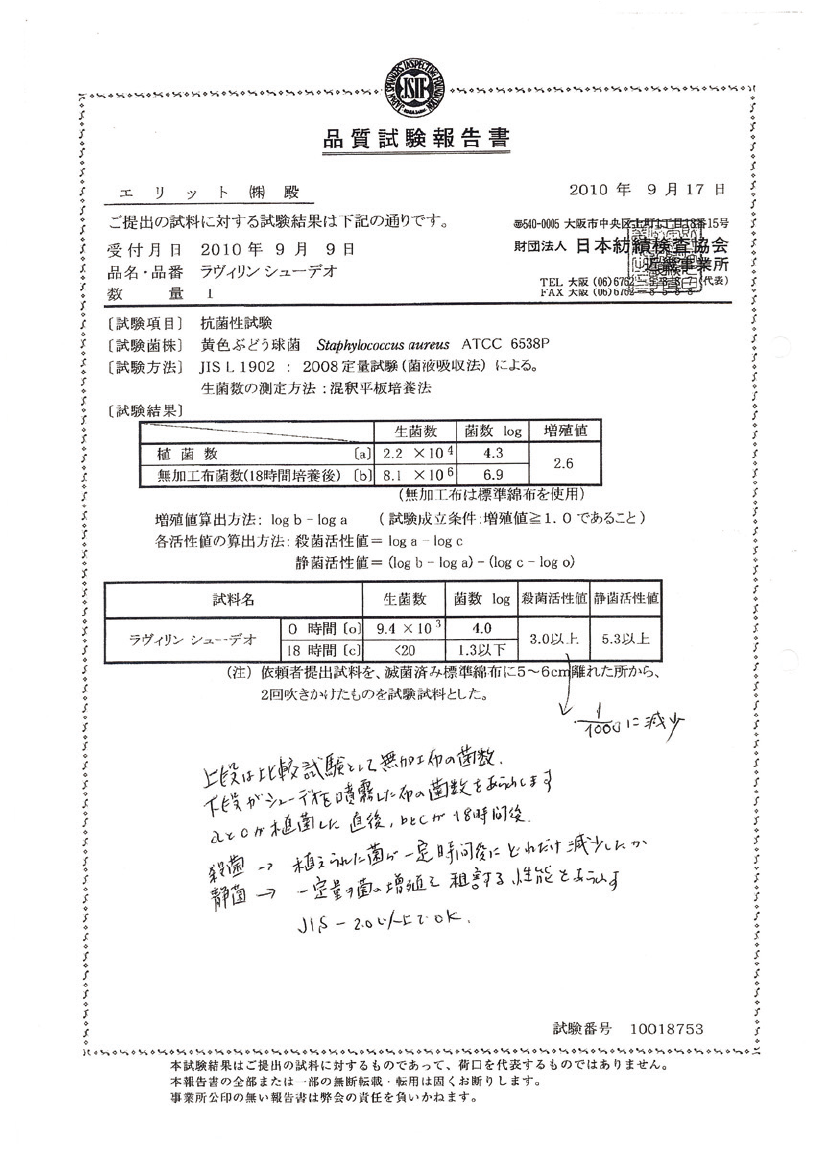 JAPAN SPINNERS INSPECTING FOUNDATION
JSIF
品質試験報告書
エリット㈱ 殿
2010 年 9 月 17 日
ご提出の試料に対する試験結果は下記の通りです。
〠540-0005 大阪市中央区上町1丁目18番15号
受付月日 2010 年 9 月 9 日
財団法人 日本紡績検査協会
品名・品番 ラヴィリン シューデオ
近畿事業所
数 量 1
TEL 大阪 (06)6762 (代表)
FAX 大阪 (06)6762
〔試験項目〕 抗菌性試験
〔試験菌株〕 黄色ぶどう球菌 Staphylococcus aureus ATCC 6538P
〔試験方法〕 JIS L 1902 : 2008 定量試験(菌液吸収法)による。
生菌数の測定方法:混釈平板培養法
〔試験結果〕
生菌数 菌数 log 増殖値
植菌数 〔a〕 2.2 ×10⁴ 4.3 2.6
無加工布菌数(18時間培養後) 〔b〕 8.1 ×10⁶ 6.9
(無加工布は標準綿布を使用)
増殖値算出方法: log b - log a (試験成立条件:増殖値≧1.0であること)
各活性値の算出方法:殺菌活性値 = log a - log c
静菌活性値 = (log b - log a) - (log c - log o)
試料名 生菌数 菌数 log 殺菌活性値 静菌活性値
ラヴィリン シューデオ 0 時間〔o〕 9.4 × 10³ 4.0 3.0以上 5.3以上
18 時間〔c〕 <20 1.3以下
(注) 依頼者提出試料を、滅菌済み標準綿布に5~6cm離れた所から、
2回吹きかけたものを試験試料とした。
1/1000に減少
上段は比較試験として無加工布の菌数.
下段がシューデオを噴霧した布の菌数をあらわします
aとoが植菌した直後, bとcが18時間後.
殺菌 → 植えられた菌が一定時間後にどれだけ減少したか
静菌 → 一定量の菌の増殖を阻害する性能をあらわす
JIS - 2.0以上でOK.
試験番号 10018753
本試験結果はご提出の試料に対するものであって、荷口を代表するものではありません。
本報告書の全部または一部の無断転載・転用は固くお断りします。
事業所公印の無い報告書は弊会の責任を負いかねます。